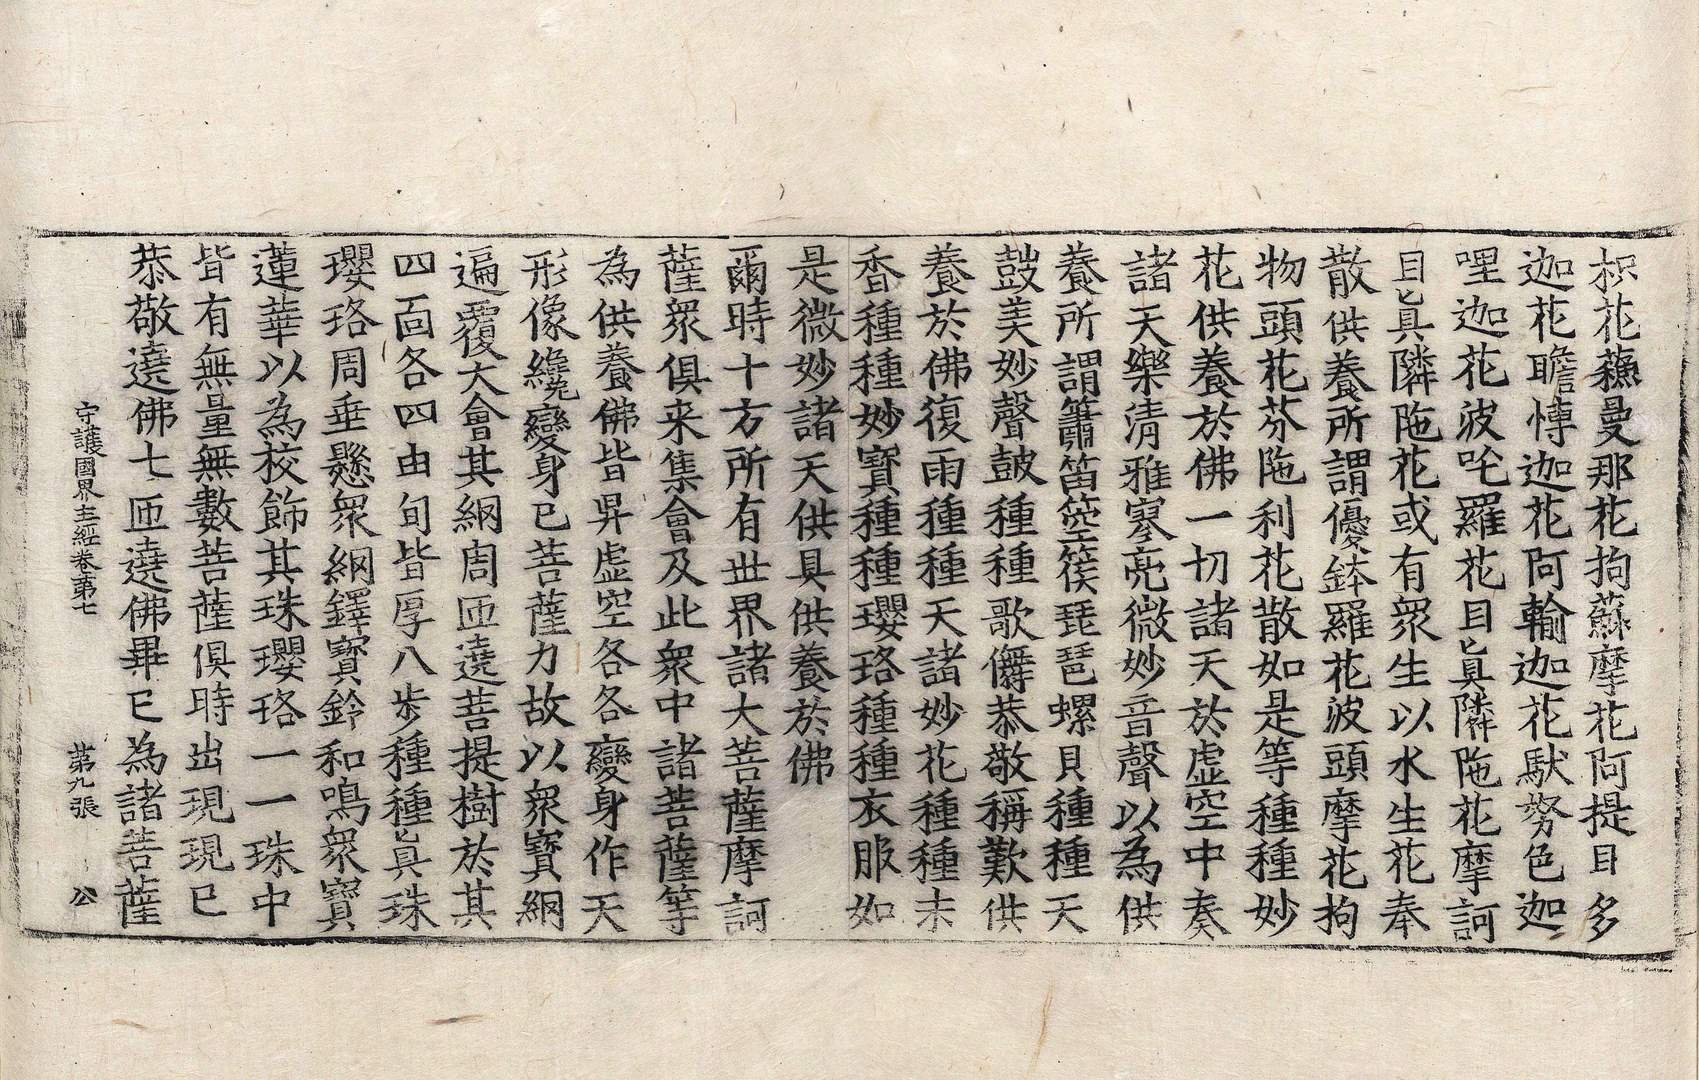 枳花蘓曼那花拘蘇摩花阿提目多
迦花瞻愽迦花阿輸迦花馱努色迦
哩迦花波吒羅花目真隣陁花摩訶
目真隣陁花或有衆生以水生花奉
散供養所謂優鉢羅花波頭摩花拘
物頭花芬陁利花散如是等種種妙
花供養於佛一切諸天於虛空中奏
諸天樂清雅寥亮微妙音聲以為供
養所謂簫笛箜篌琵琶螺貝種種天
鼓美妙聲鼓種種歌儛恭敬稱歎供
養於佛復雨種種天諸妙花種種末
香種種妙寶種種瓔珞種種衣服如
是微妙諸天供具供養於佛
爾時十方所有世界諸大菩薩摩訶
薩衆俱来集會及此衆中諸菩薩等
為供養佛皆昇虛空各各變身作天
形像纔變身已菩薩力故以衆寶網
遍覆大會其網周匝遶菩提樹於其
四面各四由旬皆厚八步種種真珠
瓔珞周垂懸衆網鐸寶鈴和鳴衆寶
蓮華以為校飾其珠瓔珞一一珠中
皆有無量無數菩薩俱時出現現已
恭敬遶佛七匝遶佛畢已為諸菩薩
守護國界主經卷第七 第九張 公